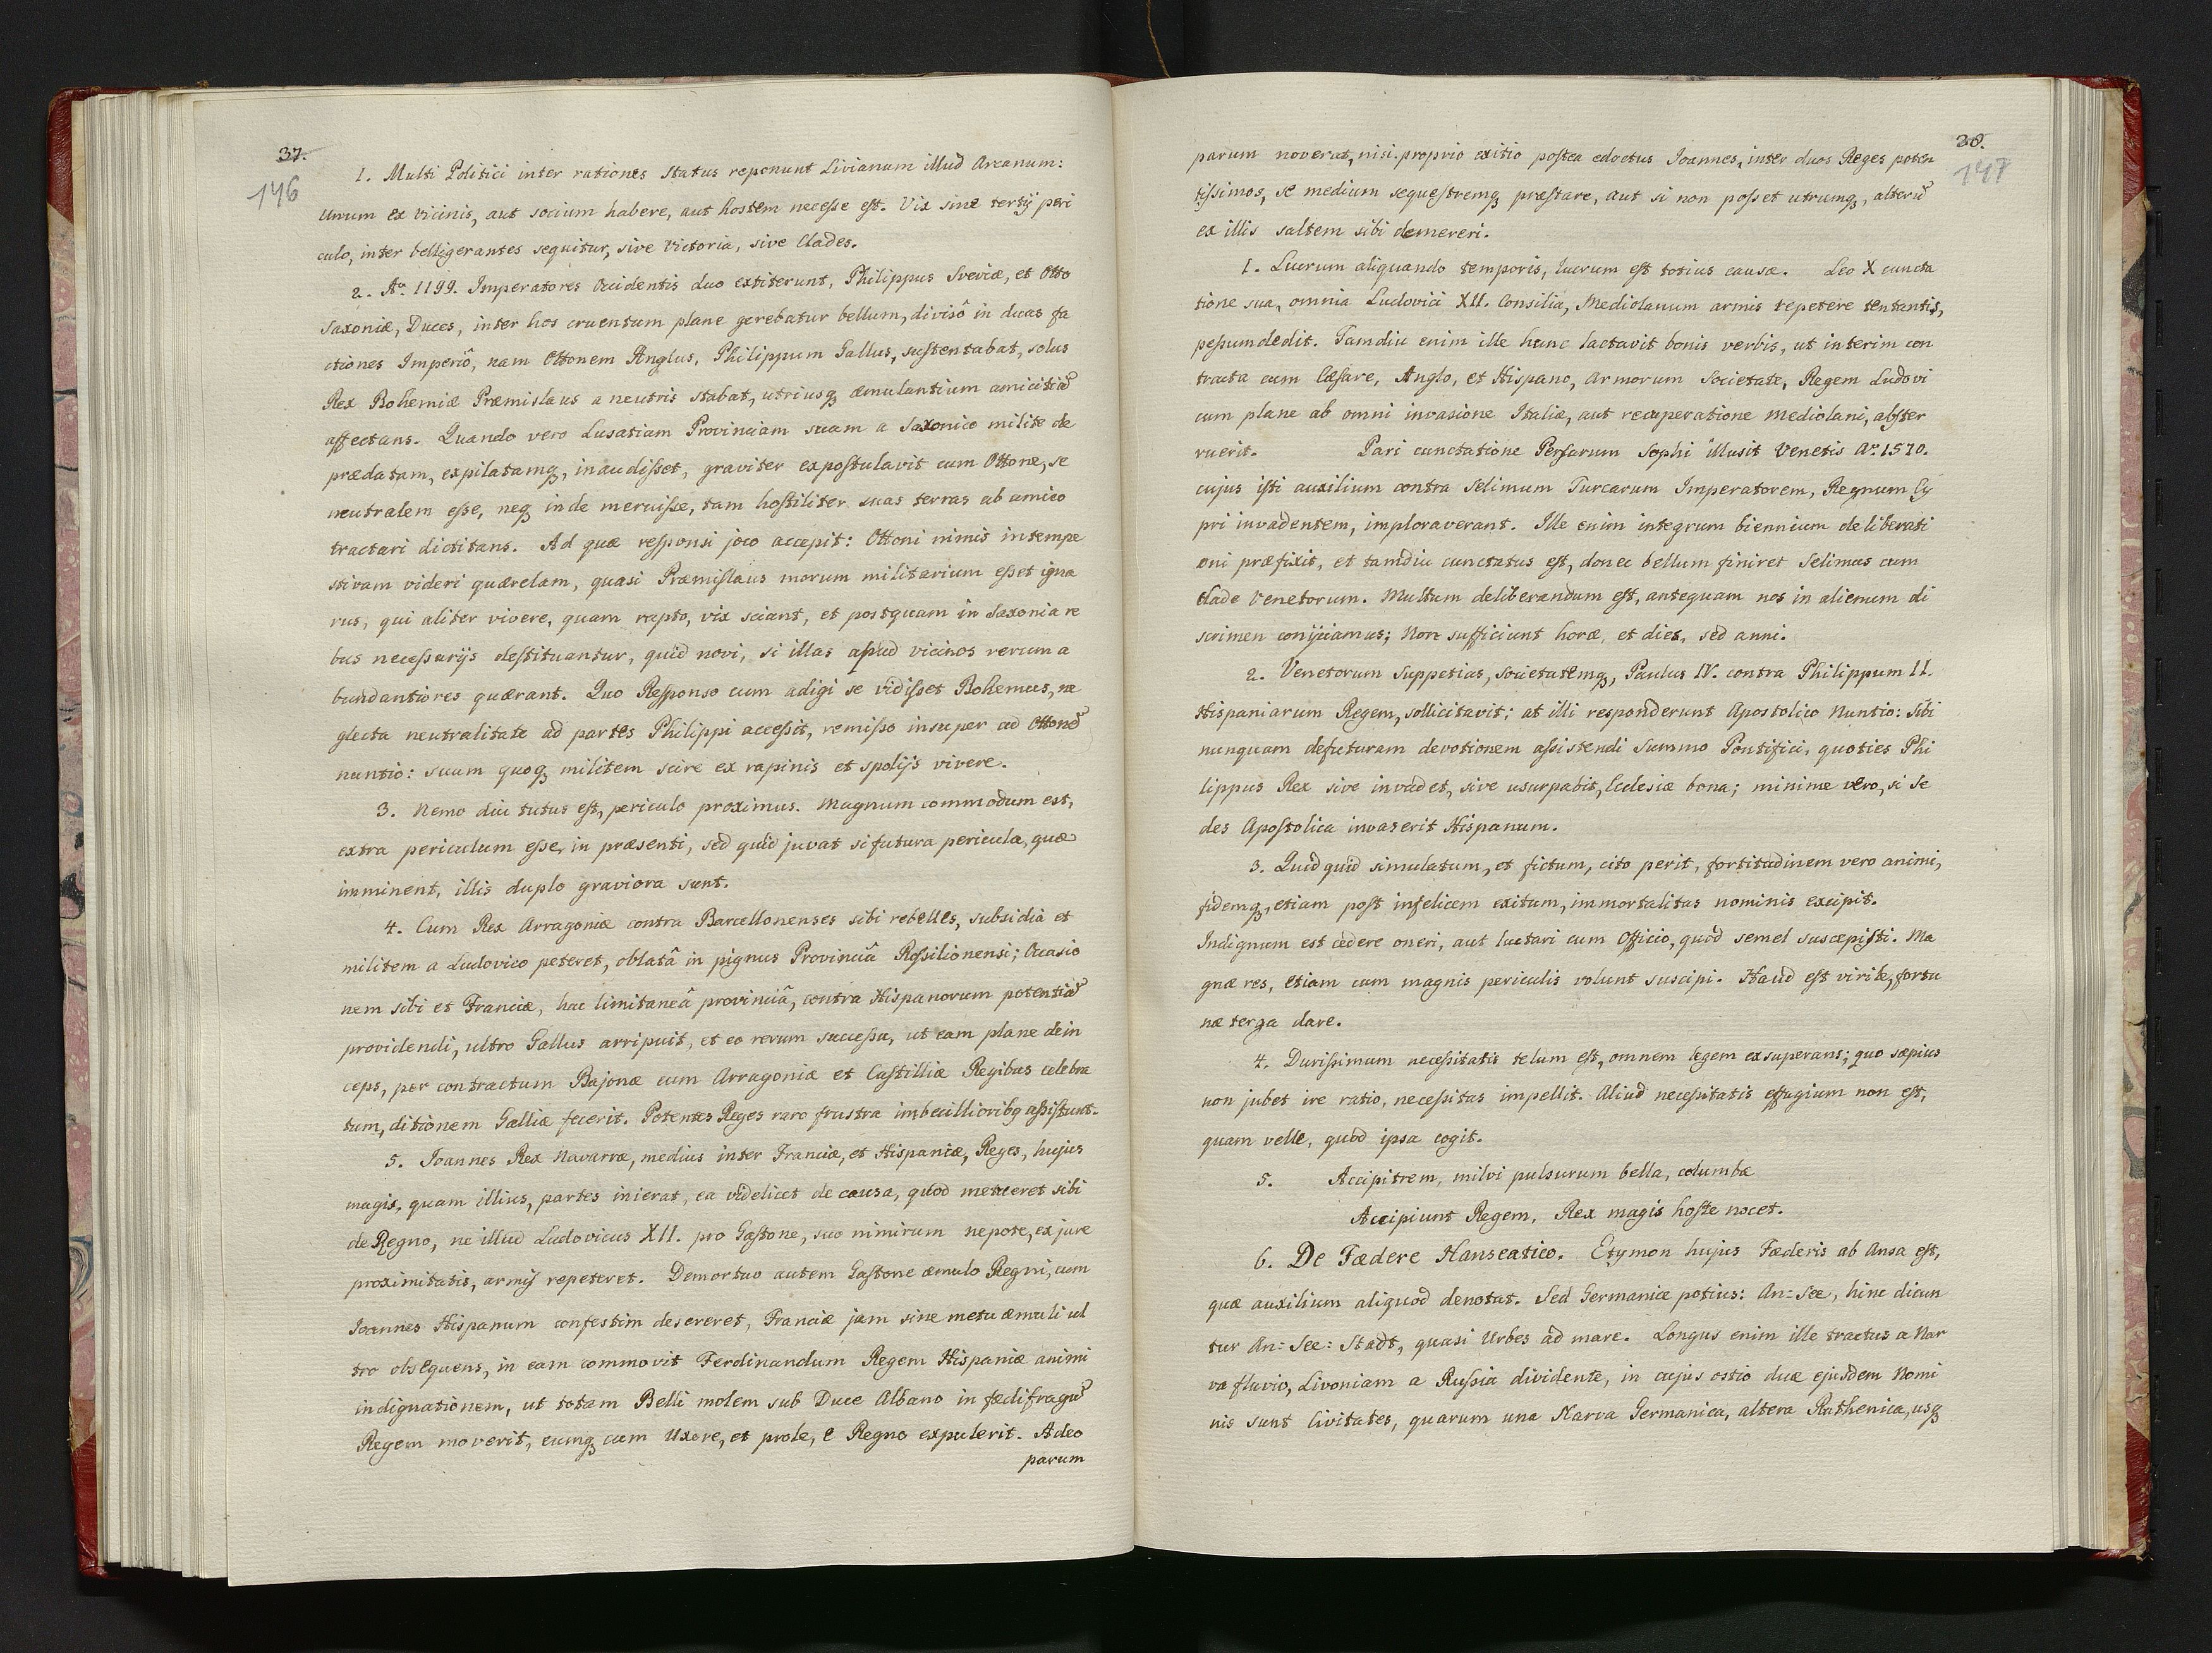 37.
146
1. Multi Politici inter rationes status reponunt Livianum illud Arcanum:
unum ex vicinis, aut socium habere, aut hostem necesse est. Vix sine tertij peri
culo, inter belligerantes sequitur, sive Victoria, sive Clades.
2. Aº. 1199. Imperatores Occidentis duo extiterunt, Philippus Sveviæ, et Otto
Saxoniæ, Duces, inter hos cruentum plane gerebatur bellum, divisô in duas fa
ctiones Imperiô, nam Ottonem Anglus, Philippum Gallus, sustentabat, solus
Rex Bohemiæ Præmislaus a neutris stabat, utriusq₃ æmulantium amicitiã
affectans. Quando vero Lusatiam Provinciam suam a Saxonico milite de
prædatam, expilatamq₃, inaudisset, graviter expostulavit cum Ottone, se
neutralem esse, neq₃ inde meruisse, tam hostiliter suas terras ab amico
tractari dictitans. Ad quæ responsi joco accepit: Ottoni nimis intempe
stivam videri quærelam, quasi Præmislaus morum militarium esset igna
rus, qui aliter vivere, quam rapto, vix sciant, et postquam in Saxonia re
bus necessarijs destituantur, quid novi, si illas apud vicinos rerum a
bundantiores quærant. Quo Responso cum adigi se vidisset Bohemus, ne
glecta neutralitate ad partes Philippi accessit, remisso insuper ad Ottonẽ
nuntio: suum quoq₃ militem scire ex rapinis et spolijs vivere.
3. Nemo diu tutus est, periculo proximus. Magnum commodum est,
extra periculum esse, in præsenti, sed quid juvat si futura pericula, quæ
imminent, illis duplo graviora sunt.
4. Cum Rex Arragoniæ contra Barcellonenses sibi rebelles, subsidia et
militem a Ludovico peteret, oblatâ in pignus Provinciâ Rossilionensi; Occasio
nem sibi et Franciæ, hac limitaneâ provinciâ, contra Hispanorum potentiã
providendi, ultro Gallus arripuit, et eo rerum successu, ut eam plane dein
ceps, per contractum Bajonæ cum Arragoniæ et Castilliæ Regibus celebra
tum, ditionem Galliæ fecerit. Potentes Reges raro frustra imbecillioribq assistunt.
5. Joannes Rex Navarræ, medius inter Franciæ, et Hispaniæ, Reges, hujus
magis, quam illius, partes inierat, ea videlicet de causa, quod metueret sibi
de Regno, ne illud Ludovicus XII. pro Gastone, suo nimirum nepote, ex jure
proximitatis, armis repeteret. Demortuo autem Gastone æmulo Regni, cum
Joannes Hispanum confestim desereret, Franciæ jam sine metu æmuli ul
tro obsequens, in eam commovit Ferdinandum Regem Hispaniæ animi
indignationem, ut totam Belli molem sub Duce Albano in fædifragũ
Regem moverit, eumq₃ cum Uxore, et prole, e Regno expulerit. Adeo
parum
38.
147
parum noverat, nisi proprio exitio postea edoctus Joannes, inter duos Reges poten
tissimos, se medium sequestremq₃ præstare, aut si non posset utrumq₃, alterũ
ex illis saltem sibi demereri.
1. Lucrum aliquando temporis, lucrum est totius causæ. Leo X cuncta
tione sua, omnia Ludovici XII. Consilia, Mediolanum armis repetere tentantis,
pessumdedit. Tamdiu enim ille hunc lactavit bonis verbis, ut interim con
tracta cum Cæsare, Anglo, et Hispano, armorum Societate, Regem Ludovi
cum plane ab omni invasione Italiæ, aut recuperatione Mediolani, abster
ruerit. Pari cunctatione Persarum Sophi illusit Venetis Aº. 1570.
cujus isti auxilium contra Selimum Turcarum Imperatorem, Regnum Cy
pri invadentem, imploraverant. Ille enim integrum biennium deliberati
oni præfixit, et tamdiu cunctatus est, donec bellum finiret Selimus cum
Clade Venetorum. Multum deliberandum est, antequam nos in alienum di
scrimen conijciamus; Non sufficiunt horæ, et dies, sed anni.
2. Venetorum suppetias, societatemq₃, Paulus IV. contra Philippum II.
Hispaniarum Regem, sollicitavit; at illi responderunt Apostolico Nuntio: sibi
nunquam defuturam devotionem assistendi Summo Pontifici, quoties Phi
lippus Rex sive invadet, sive usurpabit, Ecclesiæ bona; minime vero, si Se
des Apostolica invaserit Hispanum.
3. Quidquid simulatum, et fictum, cito perit, fortitudinem vero animi,
fidemq₃, etiam post infelicem exitum, immortalitas nominis excipit.
Indignum est cedere oneri, aut luctari cum Officio, quod semel suscepisti. Ma
gnæ res, etiam cum magnis periculis volunt suscipi. Haud est virile, fortu
næ terga dare.
4. Durissimum necessitatis telum est, omnem legem exsuperans; quo sæpius
non jubet ire ratio, necessitas impellit. Aliud necessitatis effugium non est,
quam velle, quod ipsa cogit.
5. Accipitrem, milvi pulsurum bella, columbæ
Accipiunt Regem, Rex magis hoste nocet.
6. De Fædere Hanseatico. Etymon hujus Fæderis ab Ansa est,
quæ auxilium aliquod denotat. Sed Germanice potius: An=See, hinc dicun
tur An=See=Stadt, quasi Urbes ad mare. Longus enim ille tractus a Nar
va fluvio, Livoniam a Russia dividente, in cujus ostio duæ ejusdem Nomi
nis sunt Civitates, quarum una Narva Germanica, altera Ruthenica, usq₃